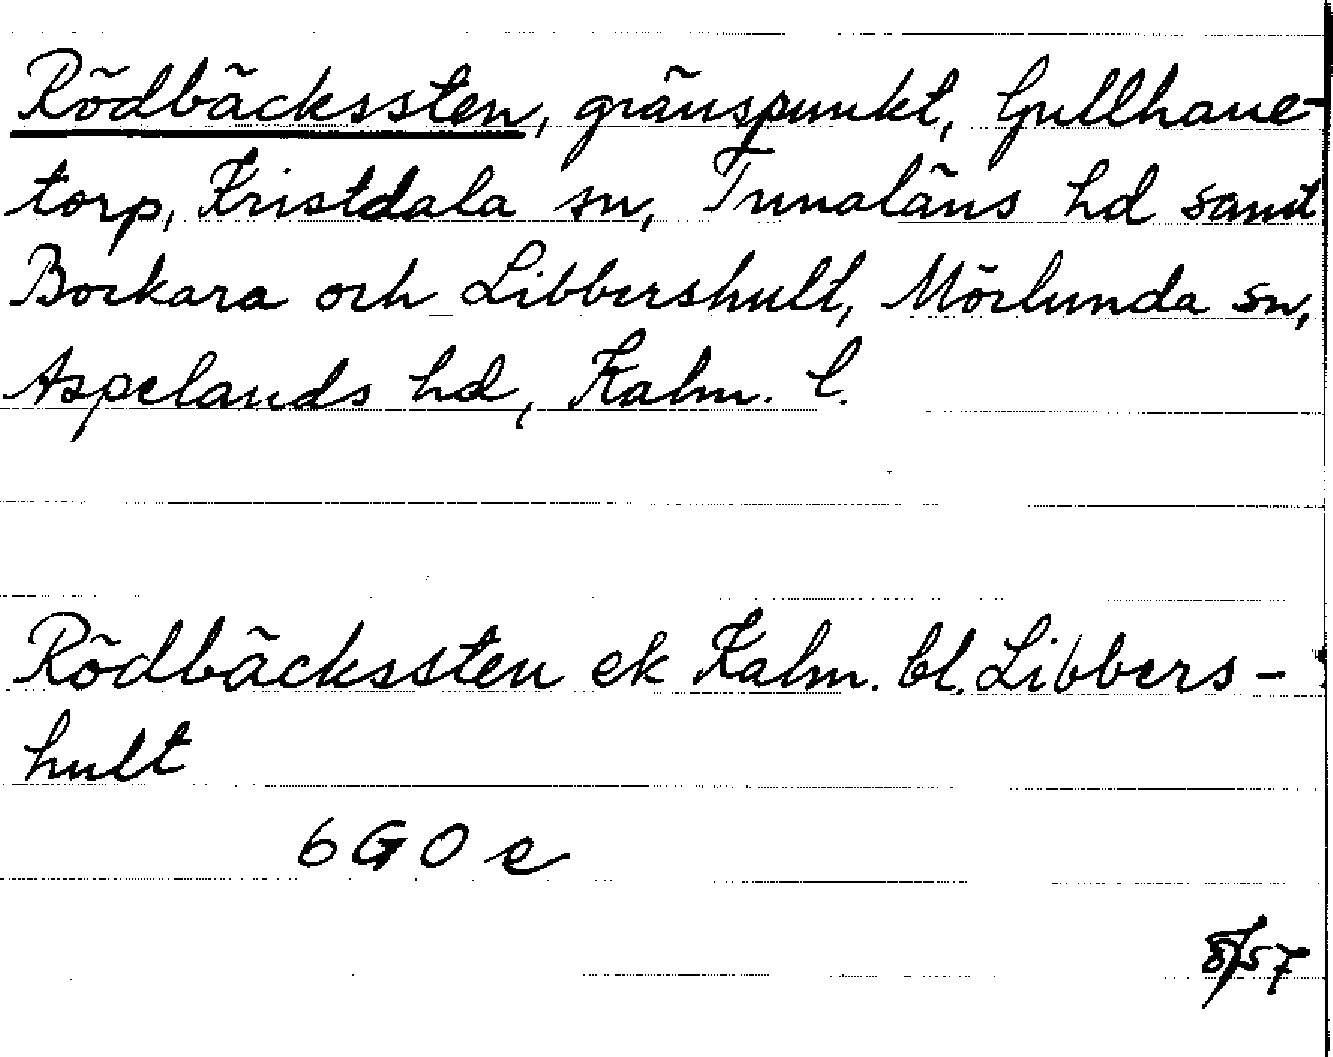 Rödbäckssten, gränspunkt, Gullhane-
torp, Kristdala sn, Tunaläns hd samt
Bockara och Libbershult, Mörlunda sn,
Aspelands hd, Kalm. l.
Rödbäckssten ek Kalm. bl. Libbers-
hult
6 G 0 e
8/57